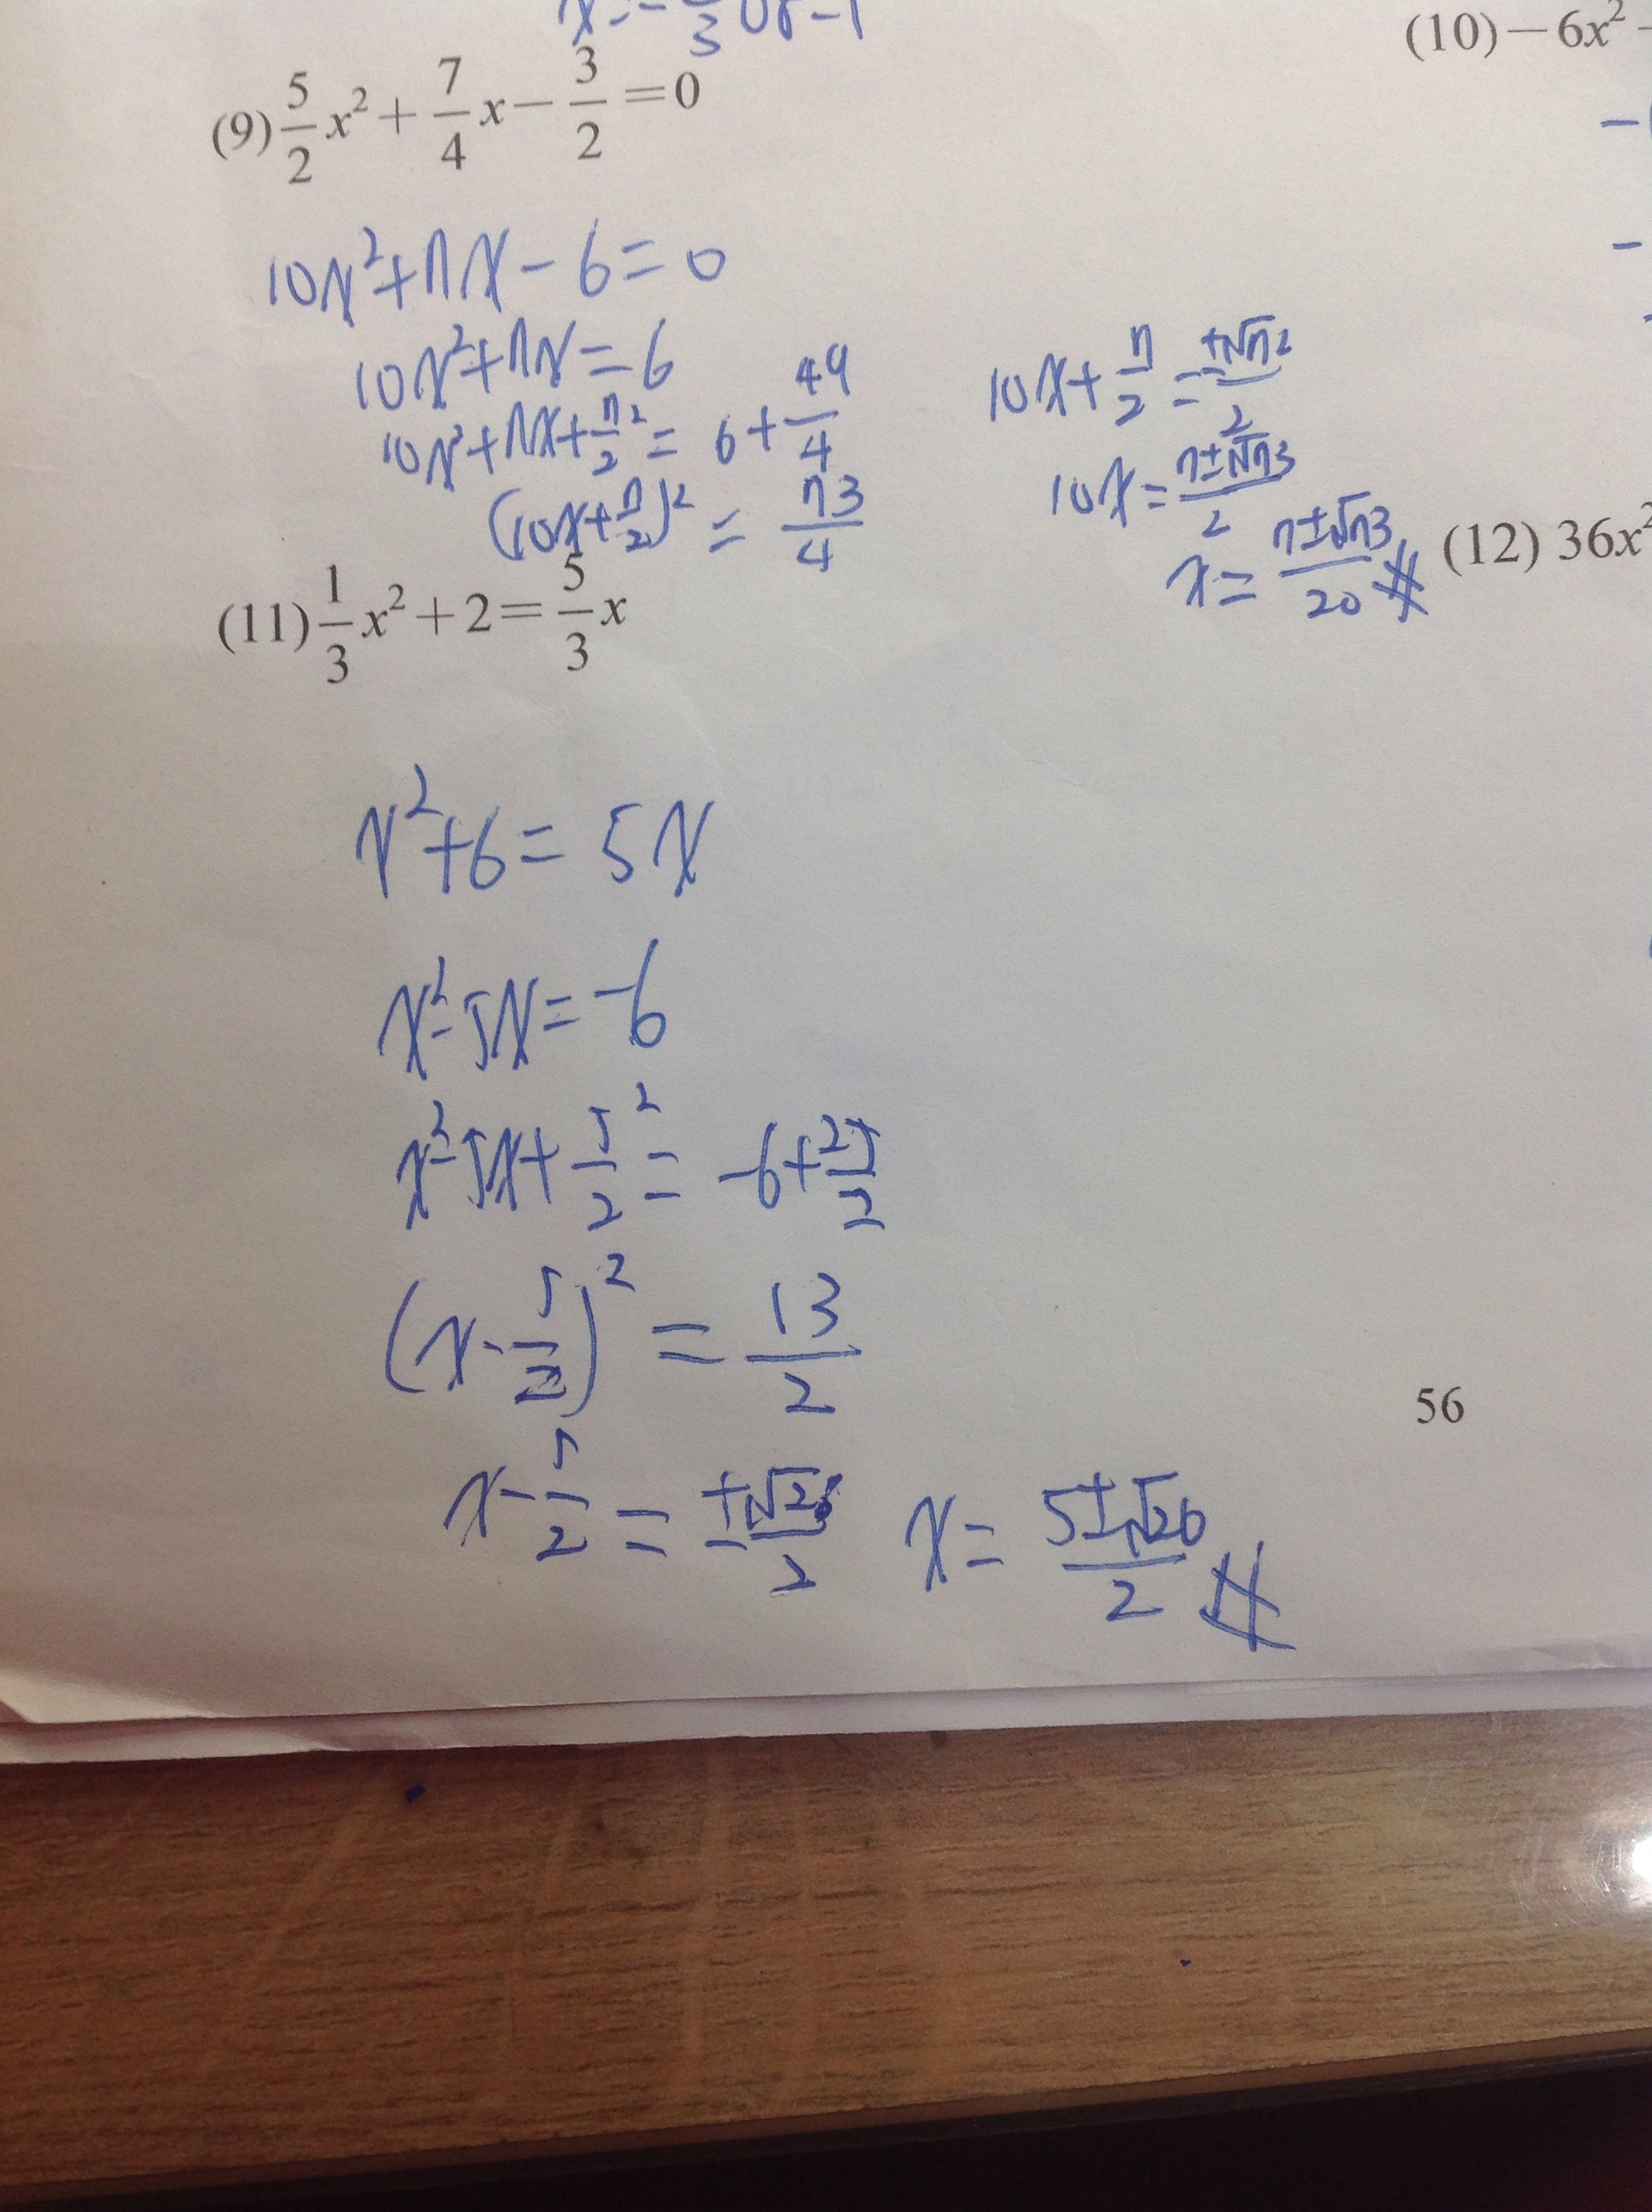 x=-/3 or -1
(9) 5/2 x² + 7/4 x - 3/2 = 0
10x²+7x-6=0
10x²+7x=6
10x²+7x+7/2² = 6+49/4
(10x+7/2)² = 73/4
10x+7/2 = ±√72/2
10x = 7±√73/2
x = 7±√73/20
(10) -6x²
(11) 1/3 x² + 2 = 5/3 x
x²+6=5x
x²-5x=-6
x²-5x+5/2² = -6+25/2
(x-5/2)² = 13/2
x-5/2 = ±√26/2
x = 5±√26/2
(12) 36x²
56